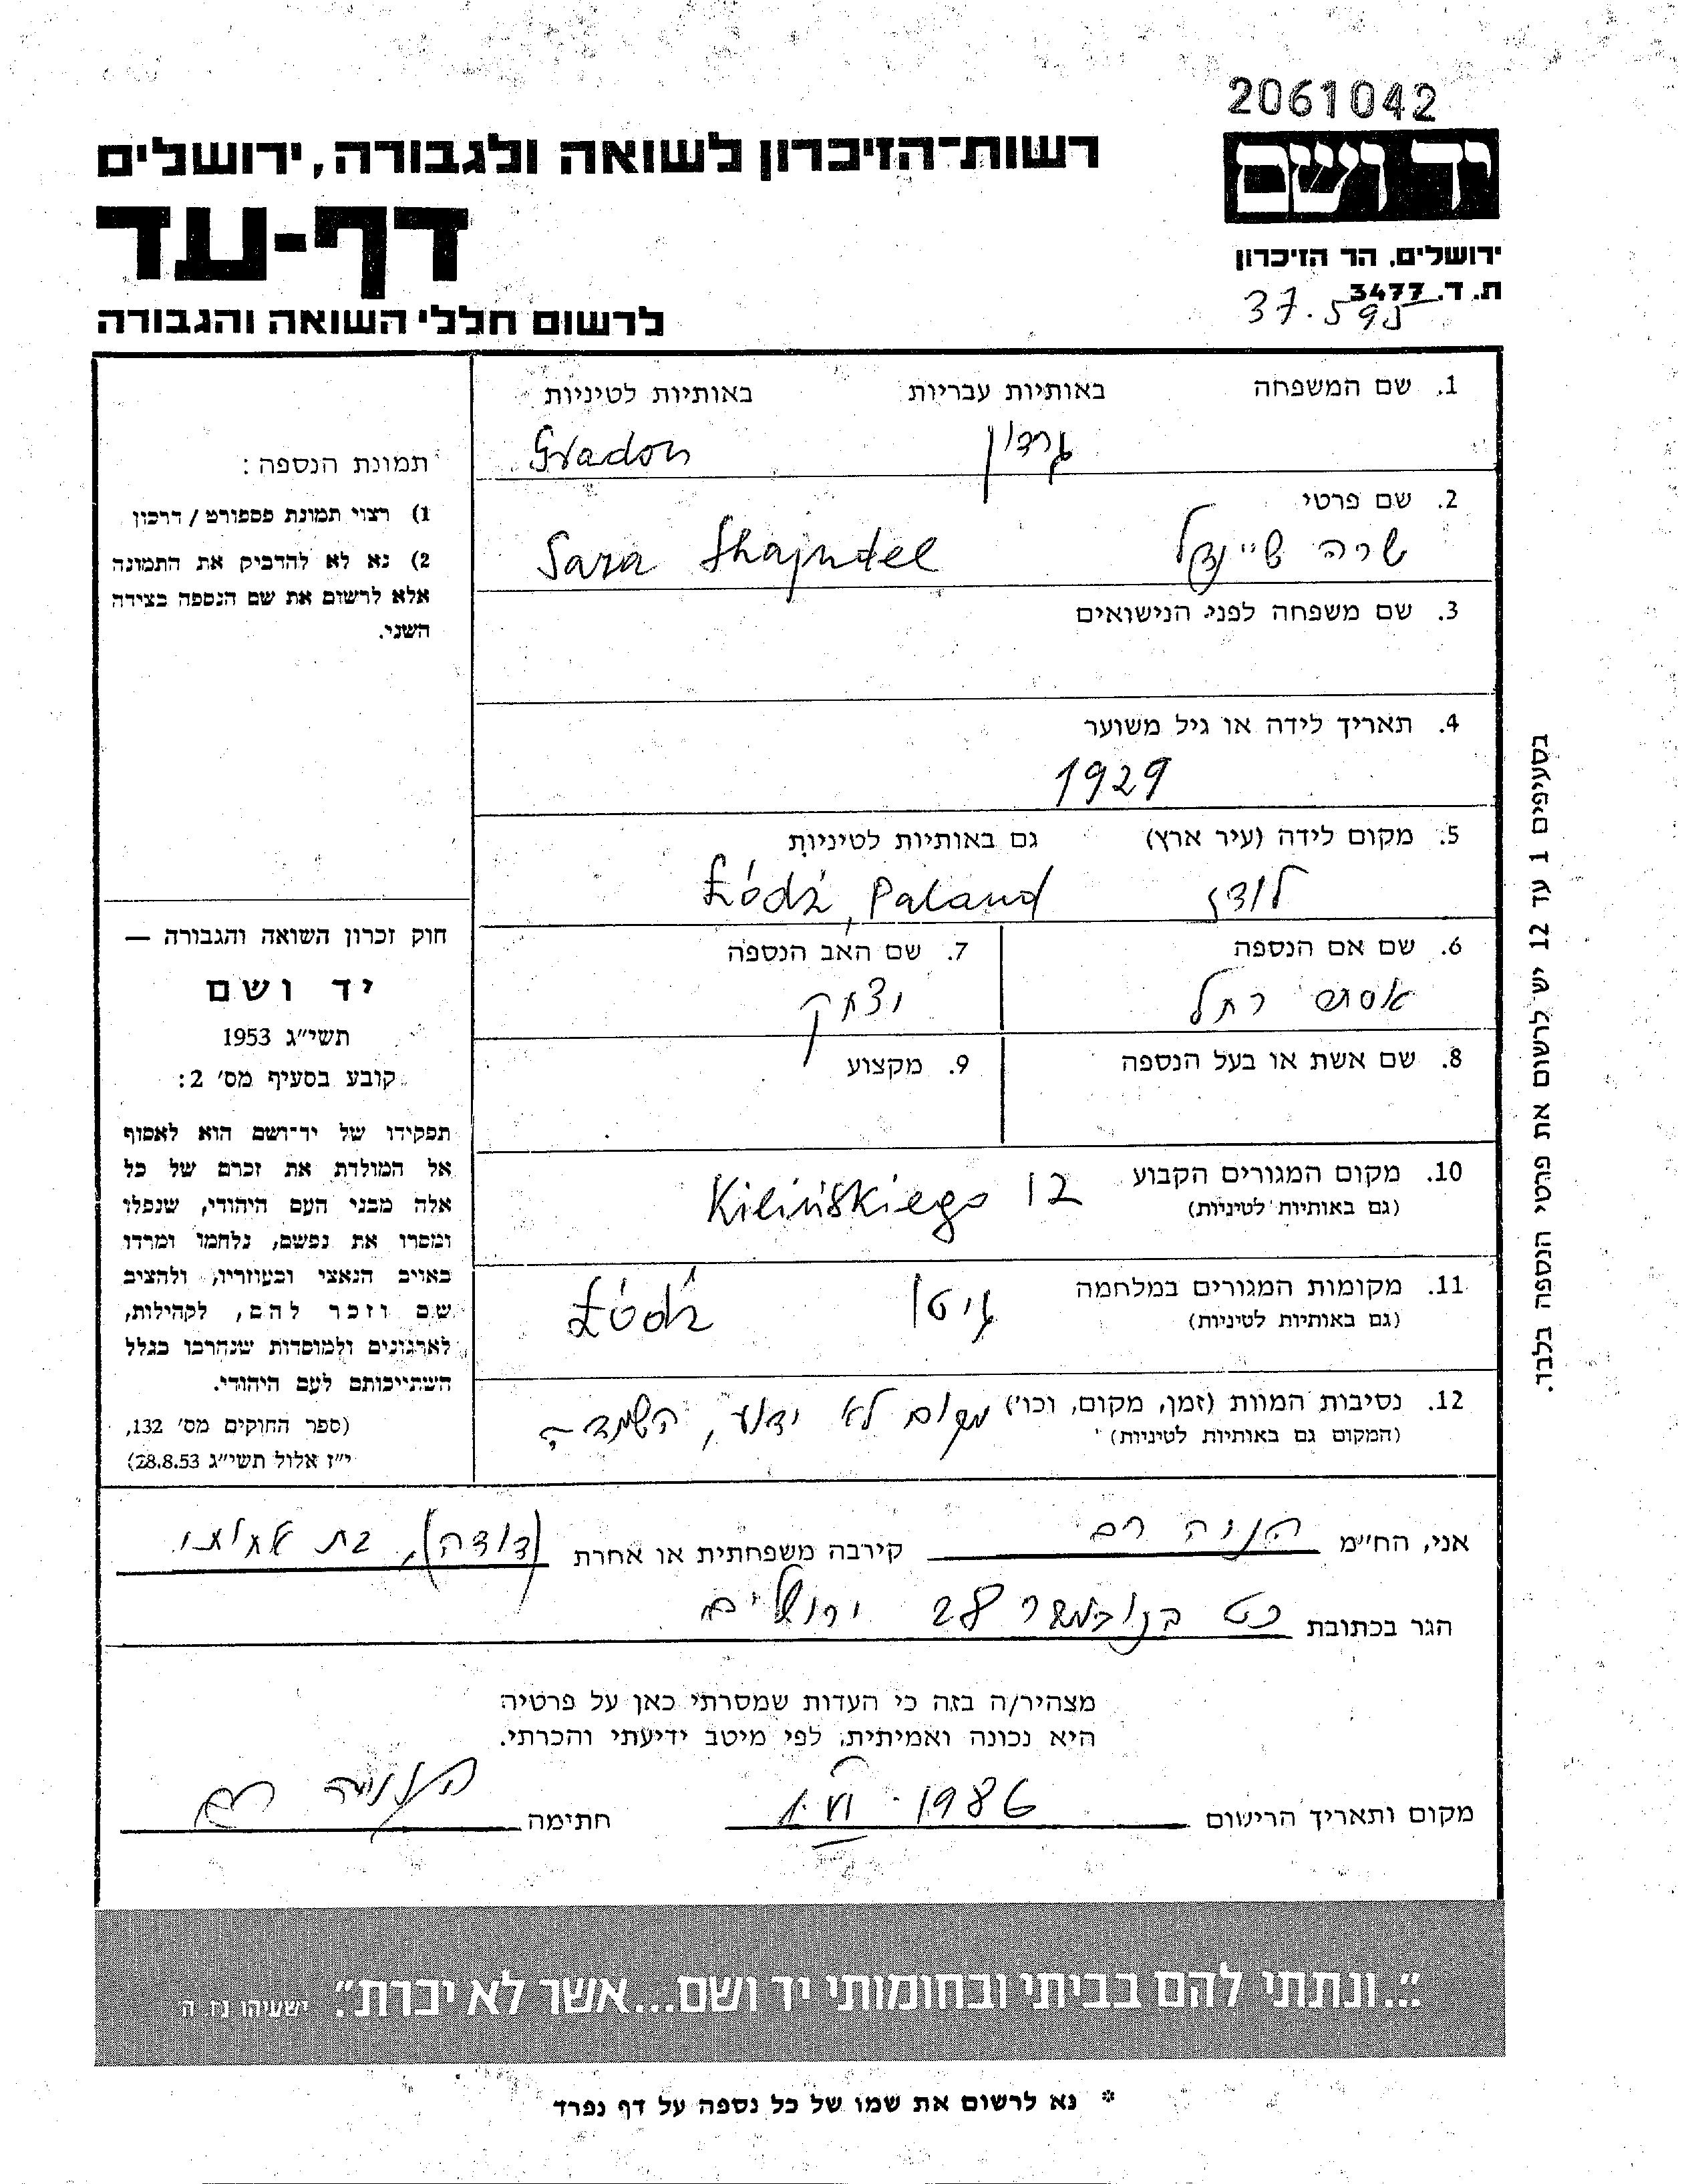 2061042
יד ושם
ירושלים, הר הזיכרון
ת. ד. 3477
37.595
רשות-הזיכרון לשואה ולגבורה, ירושלים
דף-עד
לרשום חללי השואה והגבורה
1. שם המשפחה באותיות עבריות באותיות לטיניות
גרדון Gradon
2. שם פרטי
שרה שיינדל Sara Shajndel
3. שם משפחה לפני הנישואים
4. תאריך לידה או גיל משוער
1929
5. מקום לידה (עיר ארץ) גם באותיות לטיניות
לודז Łódź, Paland
6. שם אם הנספה 7. שם האב הנספה
רחל יצחק
8. שם אשת או בעל הנספה 9. מקצוע
10. מקום המגורים הקבוע
(גם באותיות לטיניות)
Kilińskiego 12
11. מקומות המגורים במלחמה
(גם באותיות לטיניות)
גיטו Łódź
12. נסיבות המוות (זמן, מקום, וכו') מקום לא ידוע, השמדה
(המקום גם באותיות לטיניות)
תמונת הנספה:
1) רצוי תמונת פספורט / דרכון
2) נא לא להדביק את התמונה
אלא לרשום את שם הנספה בצידה
השני.
חוק זכרון השואה והגבורה —
יד ושם
תשי"ג 1953
קובע בסעיף מס' 2:
תפקידו של יד-ושם הוא לאסוף
אל המולדת את זכרם של כל
אלה מבני העם היהודי, שנפלו
ומסרו את נפשם, נלחמו ומרדו
באויב הנאצי ובעוזריו, ולהציב
שם וזכר להם, לקהילות,
לארגונים ולמוסדות שנהרבו בגלל
השתייכותם לעם היהודי.
(ספר החוקים מס' 132,
י"ז אלול תשי"ג 28.8.53)
בסעיפים 1 עד 12 יש לרשום את פרטי הנספה בלבד.
אני, הח"מ הניה רם קירבה משפחתית או אחרת (דודה), בת אחותו
הגר בכתובת כט בנובמבר 28 ירושלים
מצהיר/ה בזה כי העדות שמסרתי כאן על פרטיה
היא נכונה ואמיתית, לפי מיטב ידיעתי והכרתי.
מקום ותאריך הרישום 1.VI.1986 חתימה רם
"...ונתתי להם בביתי ובחומותי יד ושם...אשר לא יכרת". ישעיהו נז ה
* נא לרשום את שמו של כל נספה על דף נפרד